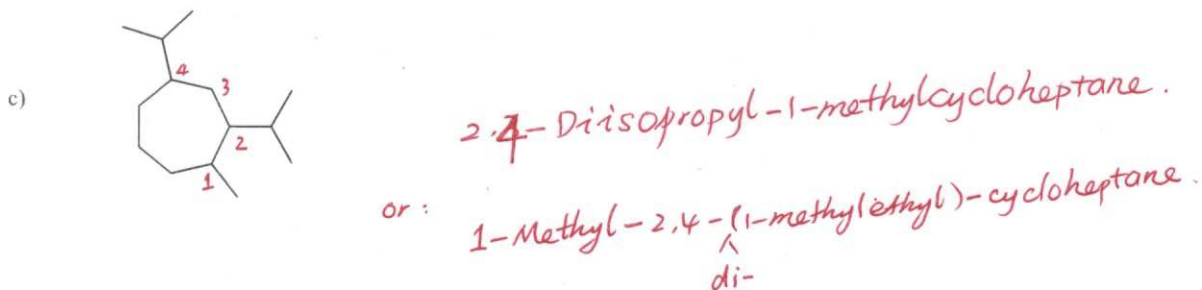 c)
4
3
2
1
2,4-Diisopropyl-1-methylcycloheptane.
or:
1-Methyl-2,4-(1-methylethyl)-cycloheptane.
^
di-